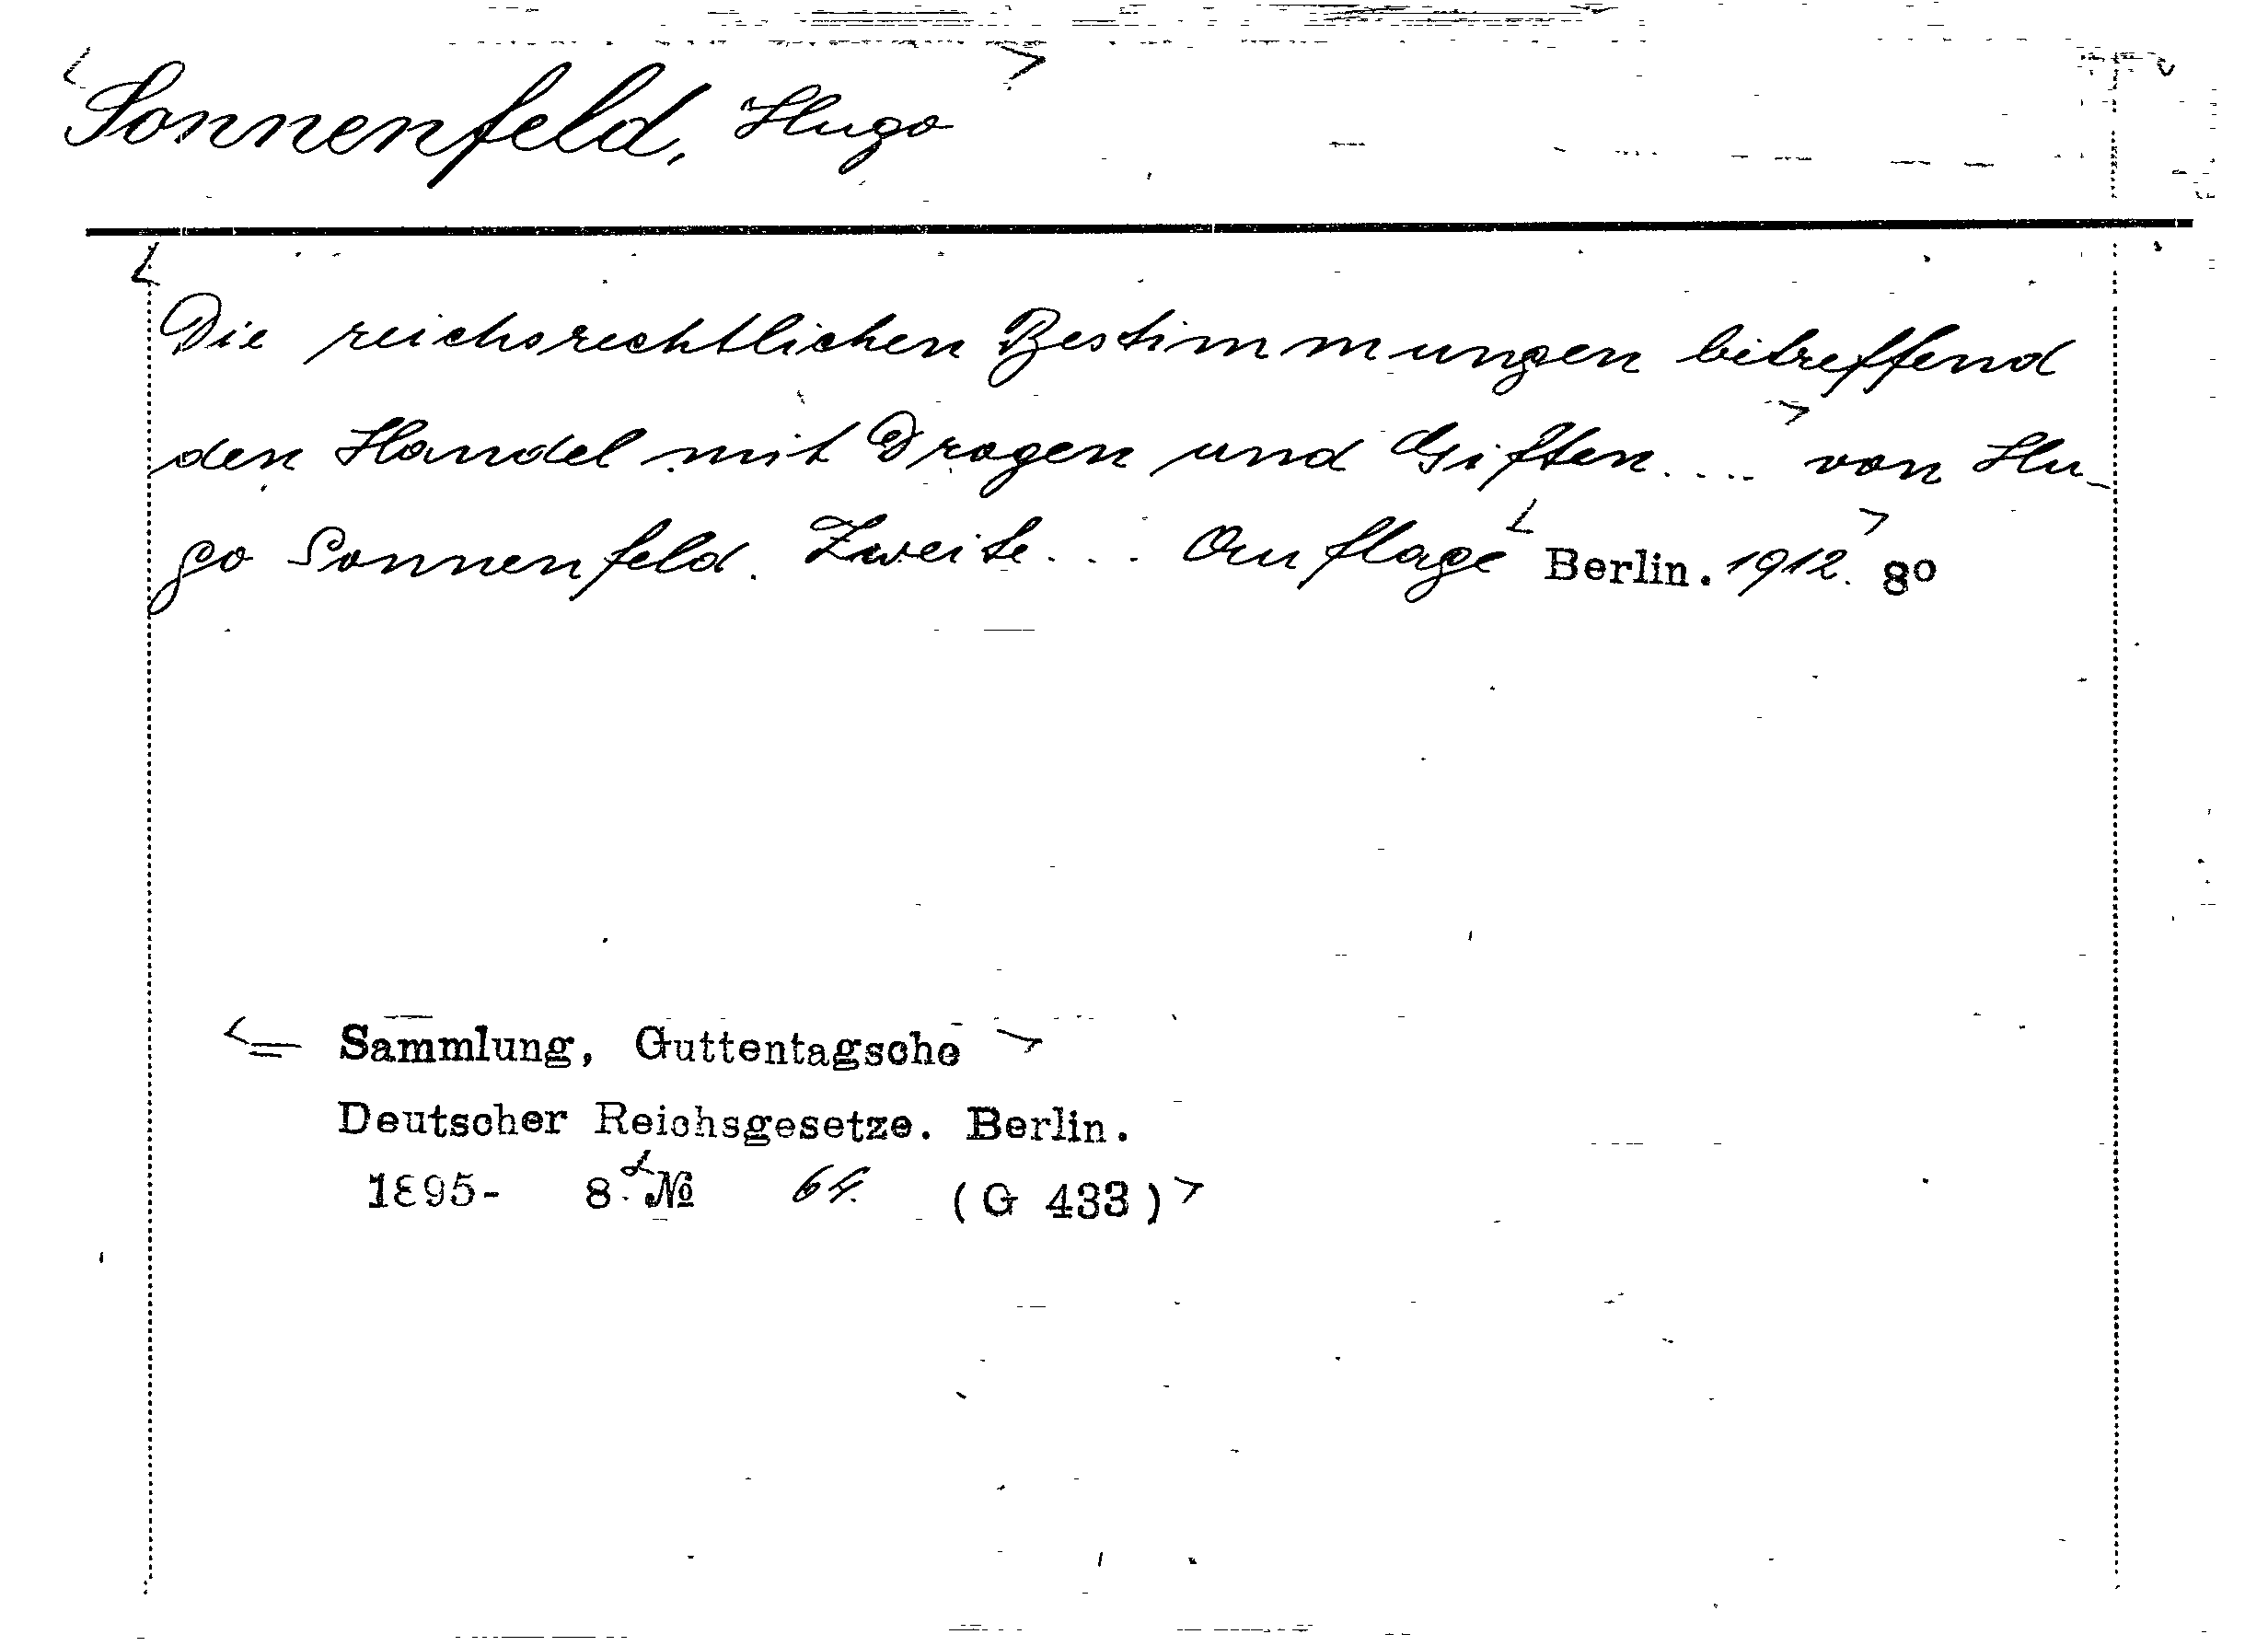 Sonnenfeld, Hugo
Die reichsrechtlichen Bestimmungen betreffend
den Handel mit Drogen und Giften.... von Hu-
go Sonnenfeld. Zweite... Auflage Berlin. 1912. 8o
= Sammlung, Guttentagsche
Deutscher Reichsgesetze. Berlin.
1895- 8. № 64. (G 433)